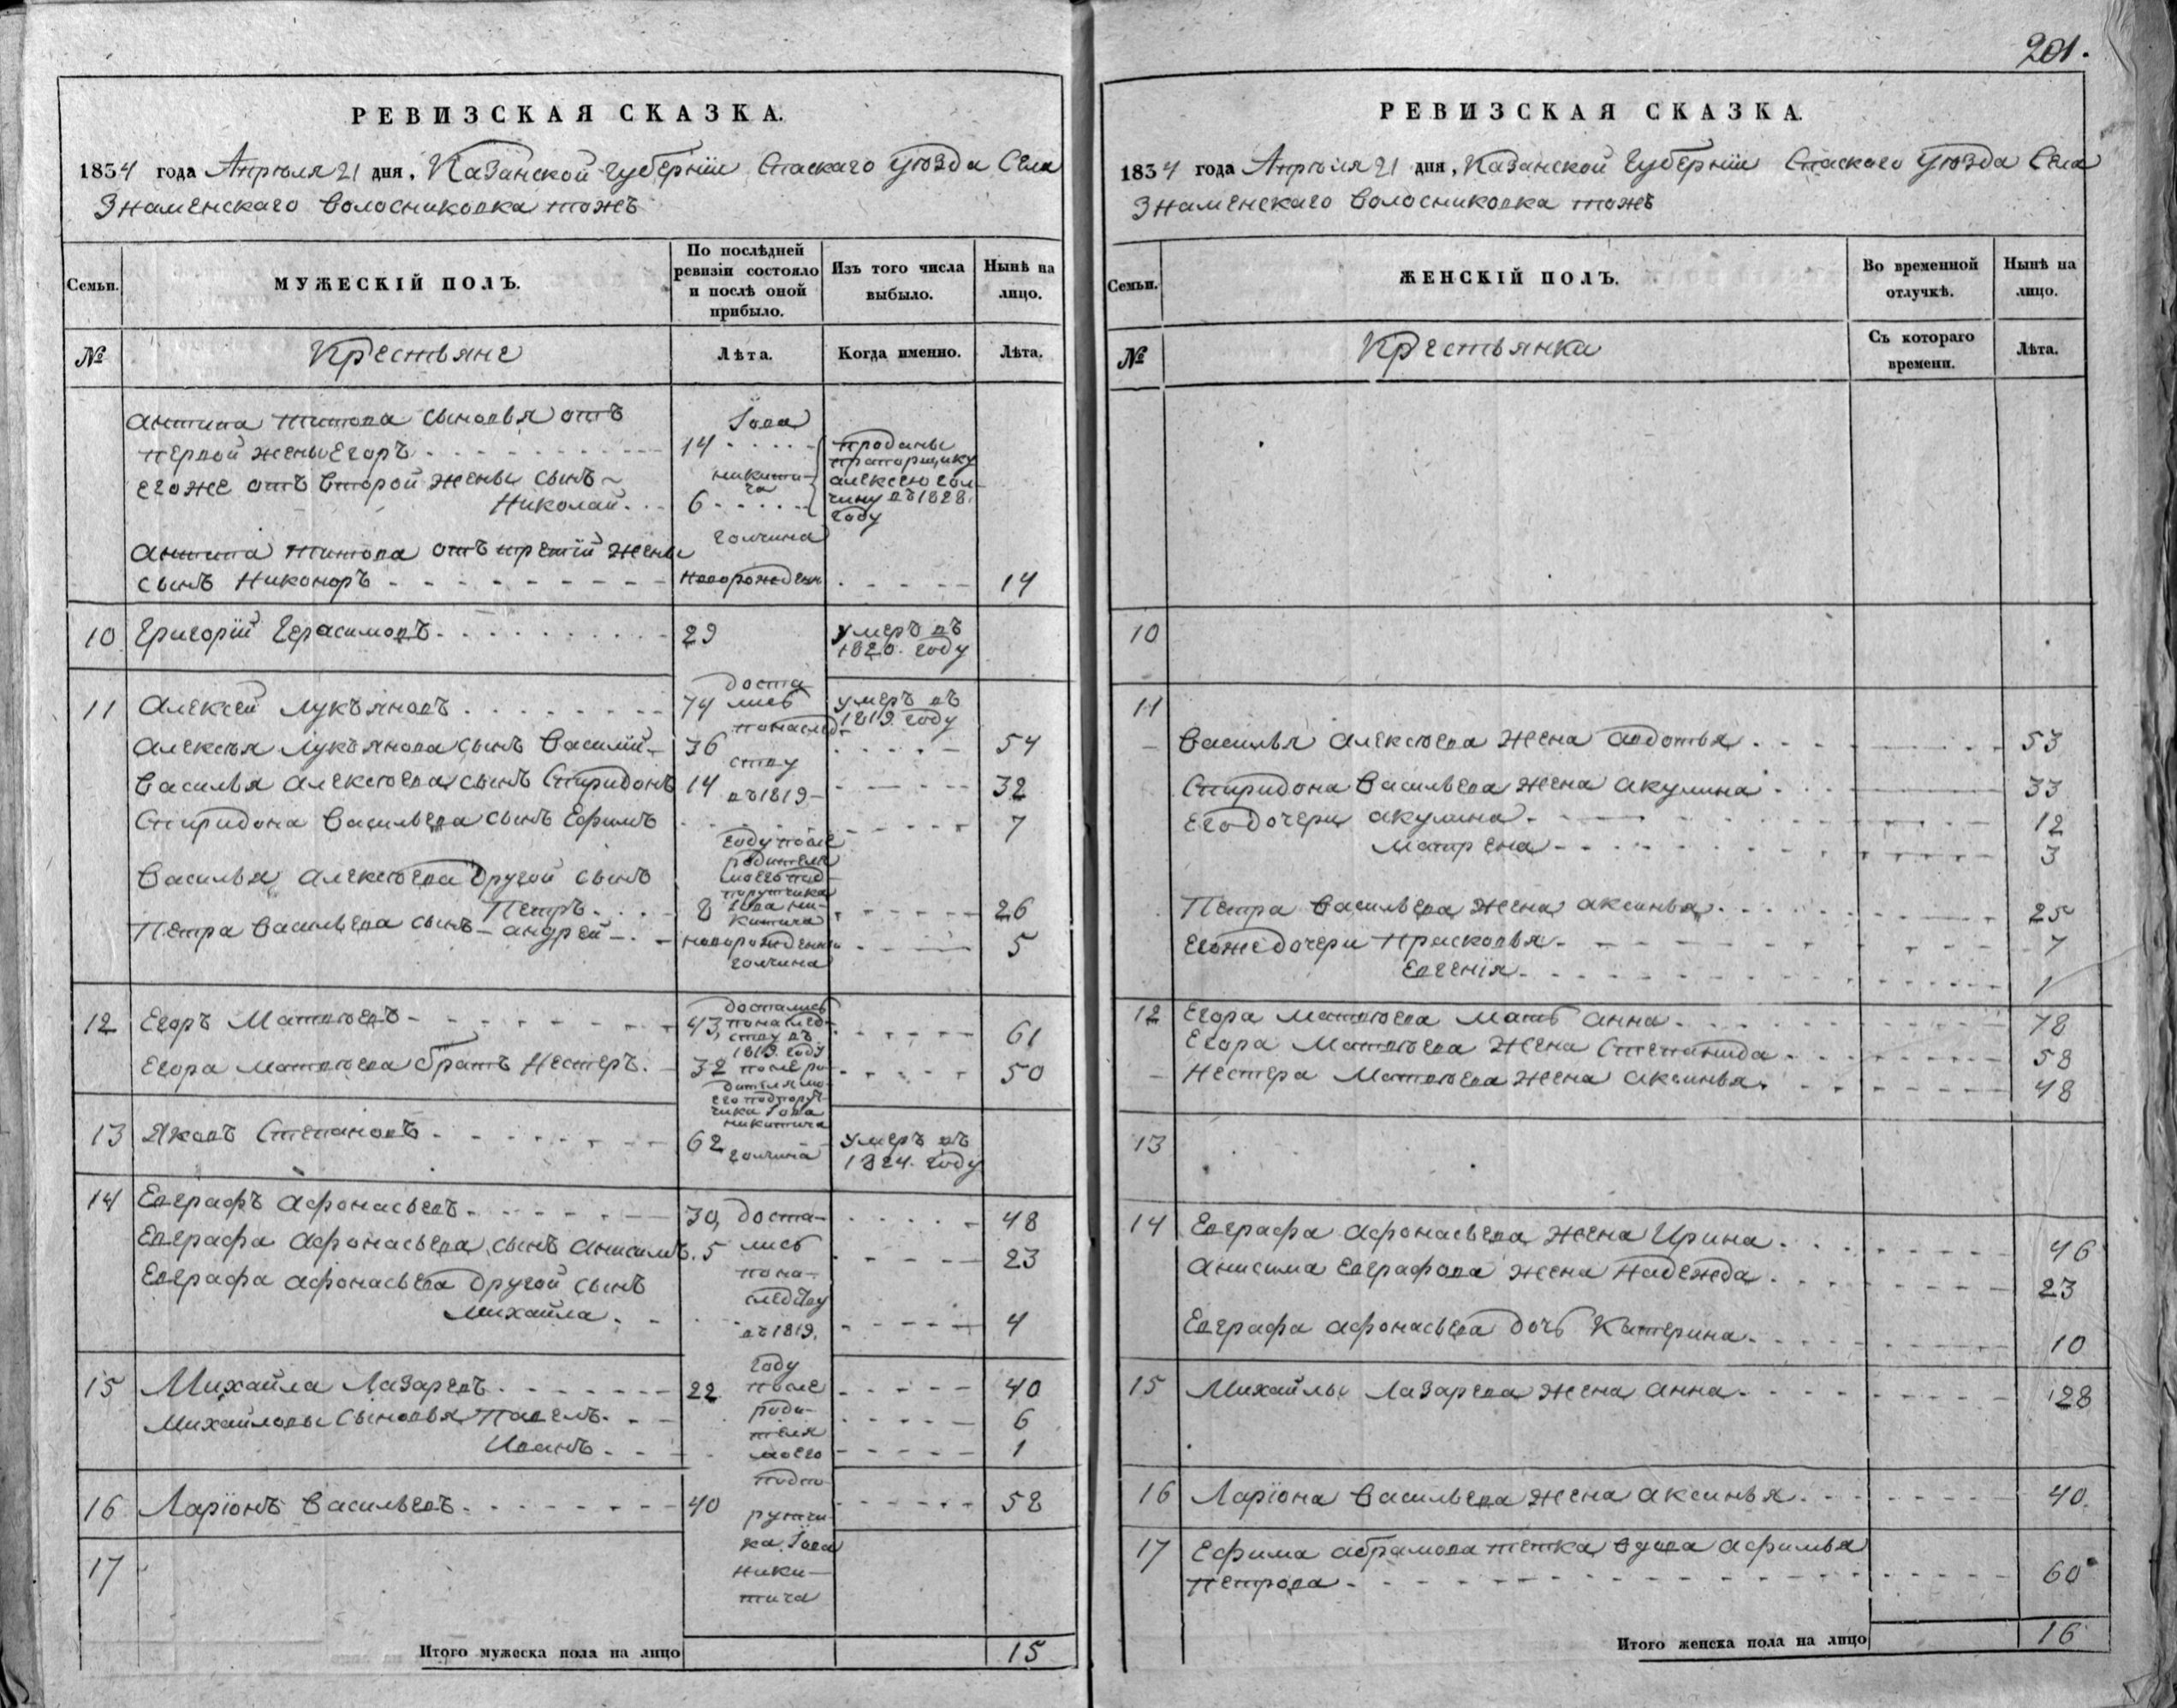 РЕВИЗСКАЯ СКАЗКА.
1834 года Апреля 21 дня, Казанской губернiи Спаскаго уѣзда Села
Знаменскаго Волосниковка тожъ
Семьи.
МУЖЕСКІЙ ПОЛЪ.
По послѣдней ревизіи состояло и послѣ оной прибыло.
Изъ того числа выбыло.
Нынѣ на лицо.
№
Крестьяне
Лѣта.
Когда именно.
Лѣта.
Антипа Титова сыновья отъ
первой жены Егоръ 14
его же отъ второй жены сынъ
Николай 6
Іова
Никити-
ча
Голчина
проданы
прапорщику
Алексею Гол-
чину въ 1828
году
Антипа Титова отъ третiй жены
сынъ Никоноръ новорожден 14
10 Григорiй Герасимовъ 29 умеръ въ
1820 году
11 Алексей Лукъяновъ 74 умеръ въ
1819 году
Алексѣя Лукъянова сынъ Василiй 36 54
Василья Алексѣева сынъ Спиридонъ 14 32
Спиридона Васильева сынъ Ефимъ 7
Василья Алексѣева другой сынъ
Петръ 8 26
Петра Васильева сынъ Андрей новорожденны 5
доста
лись
по наслед-
ству
въ 1819
году после
родителя
моего под-
порутчика
Іова Ни-
китича
Голчина
12 Егоръ Матвѣевъ 43 61
Егора Матвѣева братъ Нестеръ 32 50
достались
по наслед-
ству въ
1819 году
после ро-
дителя мо-
его подпорут-
чика Іова
Никитича
Голчина
13 Яковъ Степановъ 62 умеръ въ
1824 году
14 Евграфъ Афонасьевъ 30 48
Евграфа Афонасьева сынъ Анисимъ 5 23
Евграфа Афонасьева другой сынъ
Михайла 4
15 Михайла Лазаревъ 22 40
Михайловы сыновья Павелъ 6
Иванъ 1
16 Ларiонъ Васильевъ 40 58
17
доста-
лись
по на-
следству
въ 1819
году
после
роди-
теля
моего
подпо-
рутчи-
ка Іова
Ники-
тича
Итого мужеска пола на лицо 15
201.
РЕВИЗСКАЯ СКАЗКА.
1834 года Апрѣля 21 дня, Казанской Губернiи Спаскаго уѣзда Села
Знаменскаго Волосниковка тожъ
Семьи.
ЖЕНСКІЙ ПОЛЪ.
Во временной отлучкѣ.
Нынѣ на лицо.
№
Крестьянки
Съ котораго времени.
Лѣта.
10
11
Василья Алексѣева жена Авдотья 53
Спиридона Васильева жена Акулина 33
Его дочери Акулина 12
Матрена 3
Петра Васильева жена Аксинья 25
Его же дочери Прасковья 7
Евгенiя 1
12 Егора Матвѣева мать Анна 78
Егора Матвѣева жена Степанида 58
Нестера Матвѣева жена Аксинья 48
13
14 Евграфа Афонасьева жена Ирина 46
Анисима Евграфова жена Надежда 23
Евграфа Афонасьева дочь Катерина 10
15 Михайлы Лазарева жена Анна 28
16 Ларiона Васильева жена Аксинья 40
17 Ефима Абрамова тетка вдова Афимья
Петрова 60
Итого женска пола на лицо 16